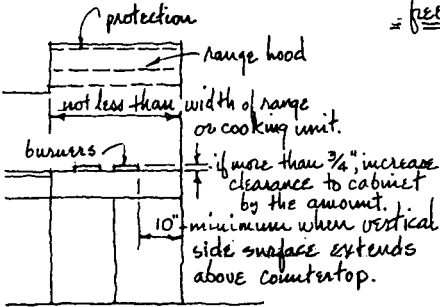 protection
= free
range hood
not less than width of range
or cooking unit.
burners
if more than 3/4", increase
clearance to cabinet
by the amount.
10" minimum when vertical
side surface extends
above countertop.